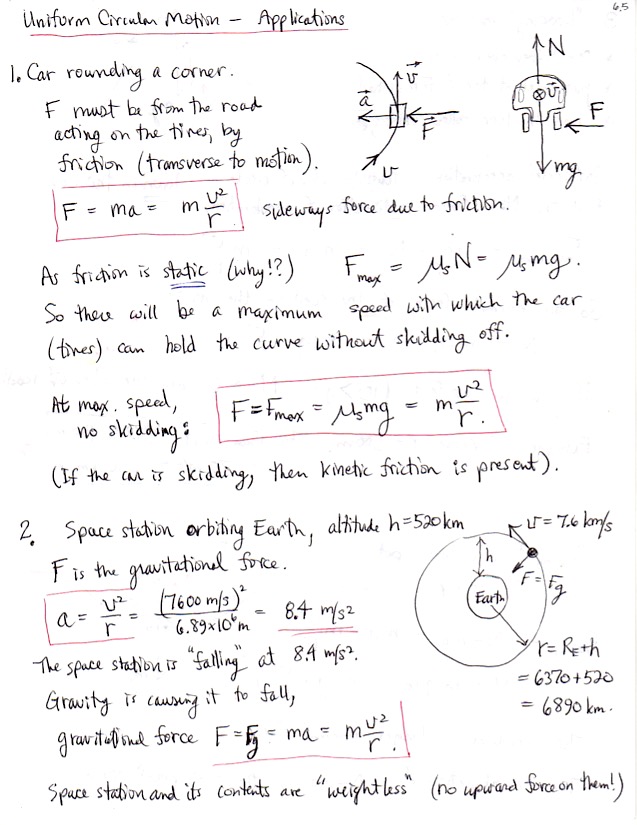 6.5
Uniform Circular Motion – Applications
1. Car rounding a corner.
F must be from the road
acting on the tires, by
friction (transverse to motion).
a⃗ v⃗ F⃗ v
N v⃗ F mg
F = ma = m v²/r sideways force due to friction.
As friction is static (why!?) Fmax = μsN = μsmg.
So there will be a maximum speed with which the car
(tires) can hold the curve without skidding off.
At max. speed,
no skidding: F = Fmax = μsmg = m v²/r.
(If the car is skidding, then kinetic friction is present).
2. Space station orbiting Earth, altitude h=520km
v = 7.6 km/s
F is the gravitational force.
h
F = Fg
Earth
a = v²/r = (7600 m/s)²/6.89×10⁶m = 8.4 m/s²
r = RE+h
= 6370+520
= 6890 km.
The space station is "falling" at 8.4 m/s².
Gravity is causing it to fall,
gravitational force F = Fg = ma = m v²/r.
Space station and its contents are "weightless" (no upward force on them!)